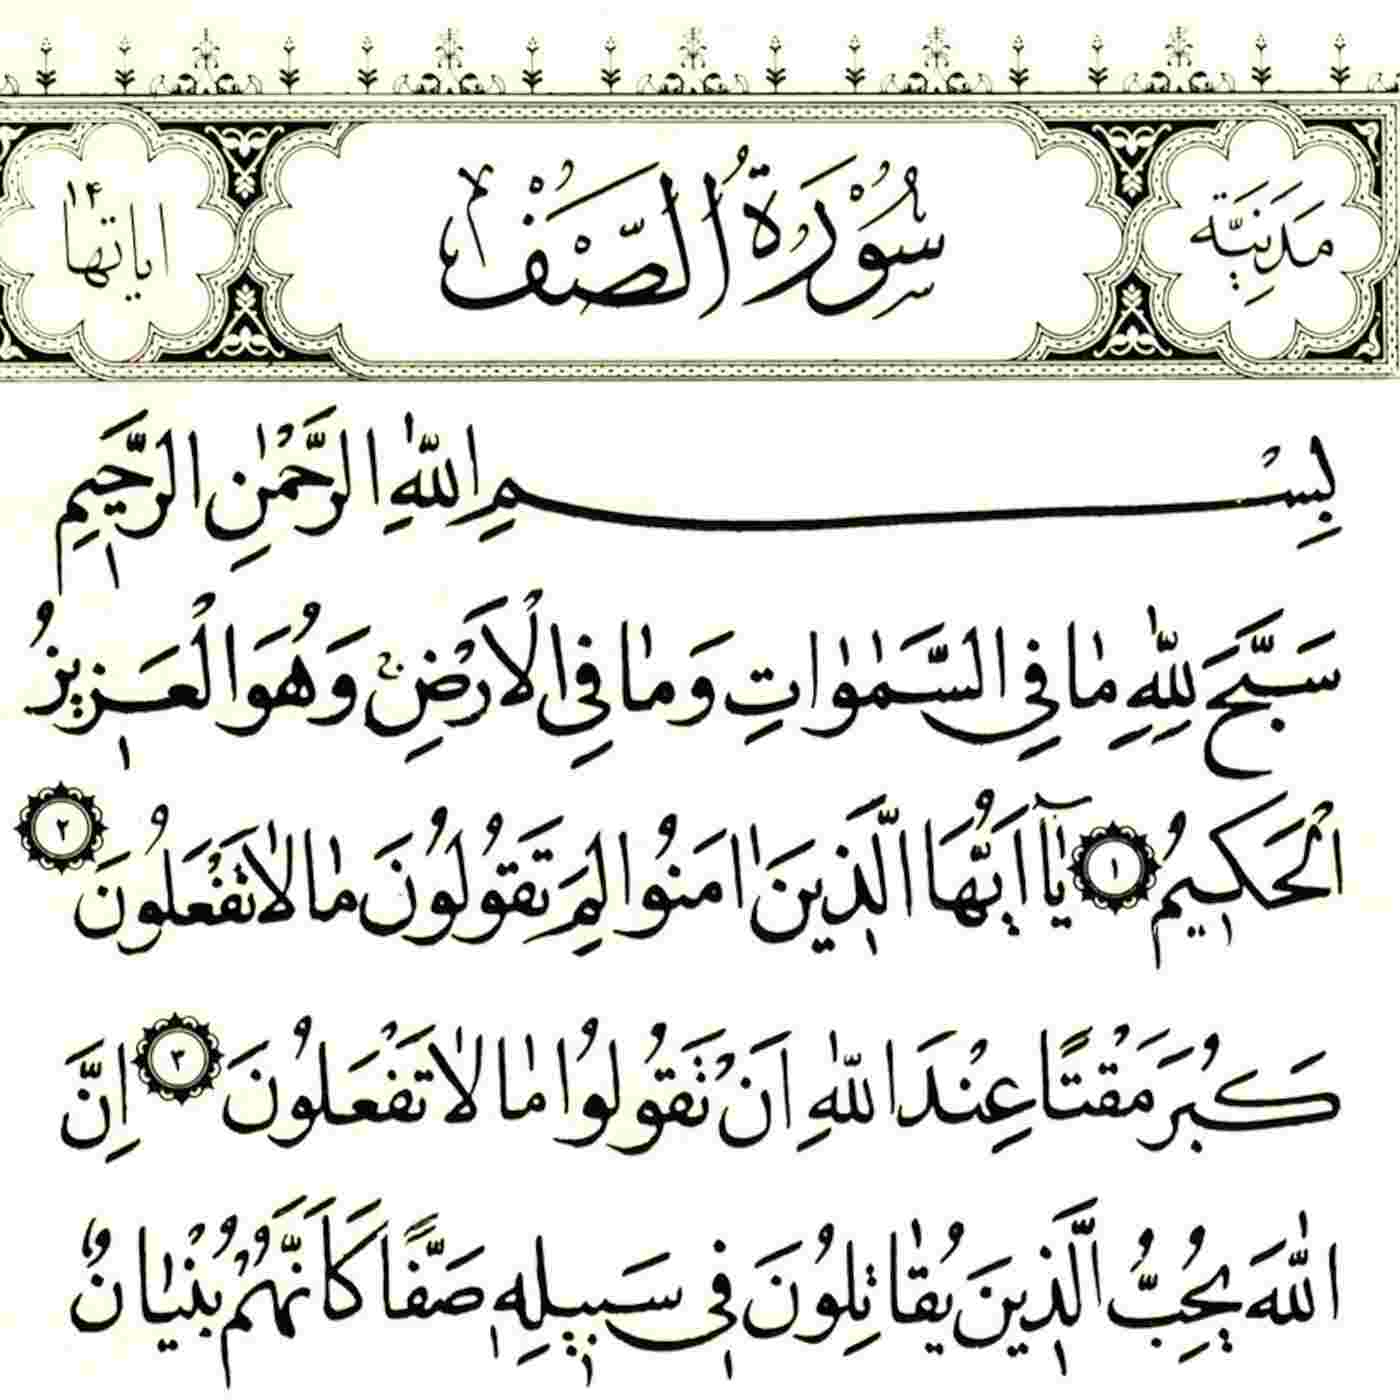 مَدَنِيَّة سُورَةُ الصَّفِّ اياتها ١٤
بِسْمِ اللّٰهِ الرَّحْمٰنِ الرَّحِيمِ
سَبَّحَ لِلّٰهِ مَا فِي السَّمٰوَاتِ وَمَا فِي الْاَرْضِ وَهُوَ الْعَزِيزُ
الْحَكِيمُ ١ يَٓا اَيُّهَا الَّذِينَ اٰمَنُوا لِمَ تَقُولُونَ مَا لَا تَفْعَلُونَ ٢
كَبُرَ مَقْتًا عِنْدَ اللّٰهِ اَنْ تَقُولُوا مَا لَا تَفْعَلُونَ ٣ اِنَّ
اللّٰهَ يُحِبُّ الَّذِينَ يُقَاتِلُونَ فِي سَبِيلِهِ صَفًّا كَاَنَّهُمْ بُنْيَانٌ